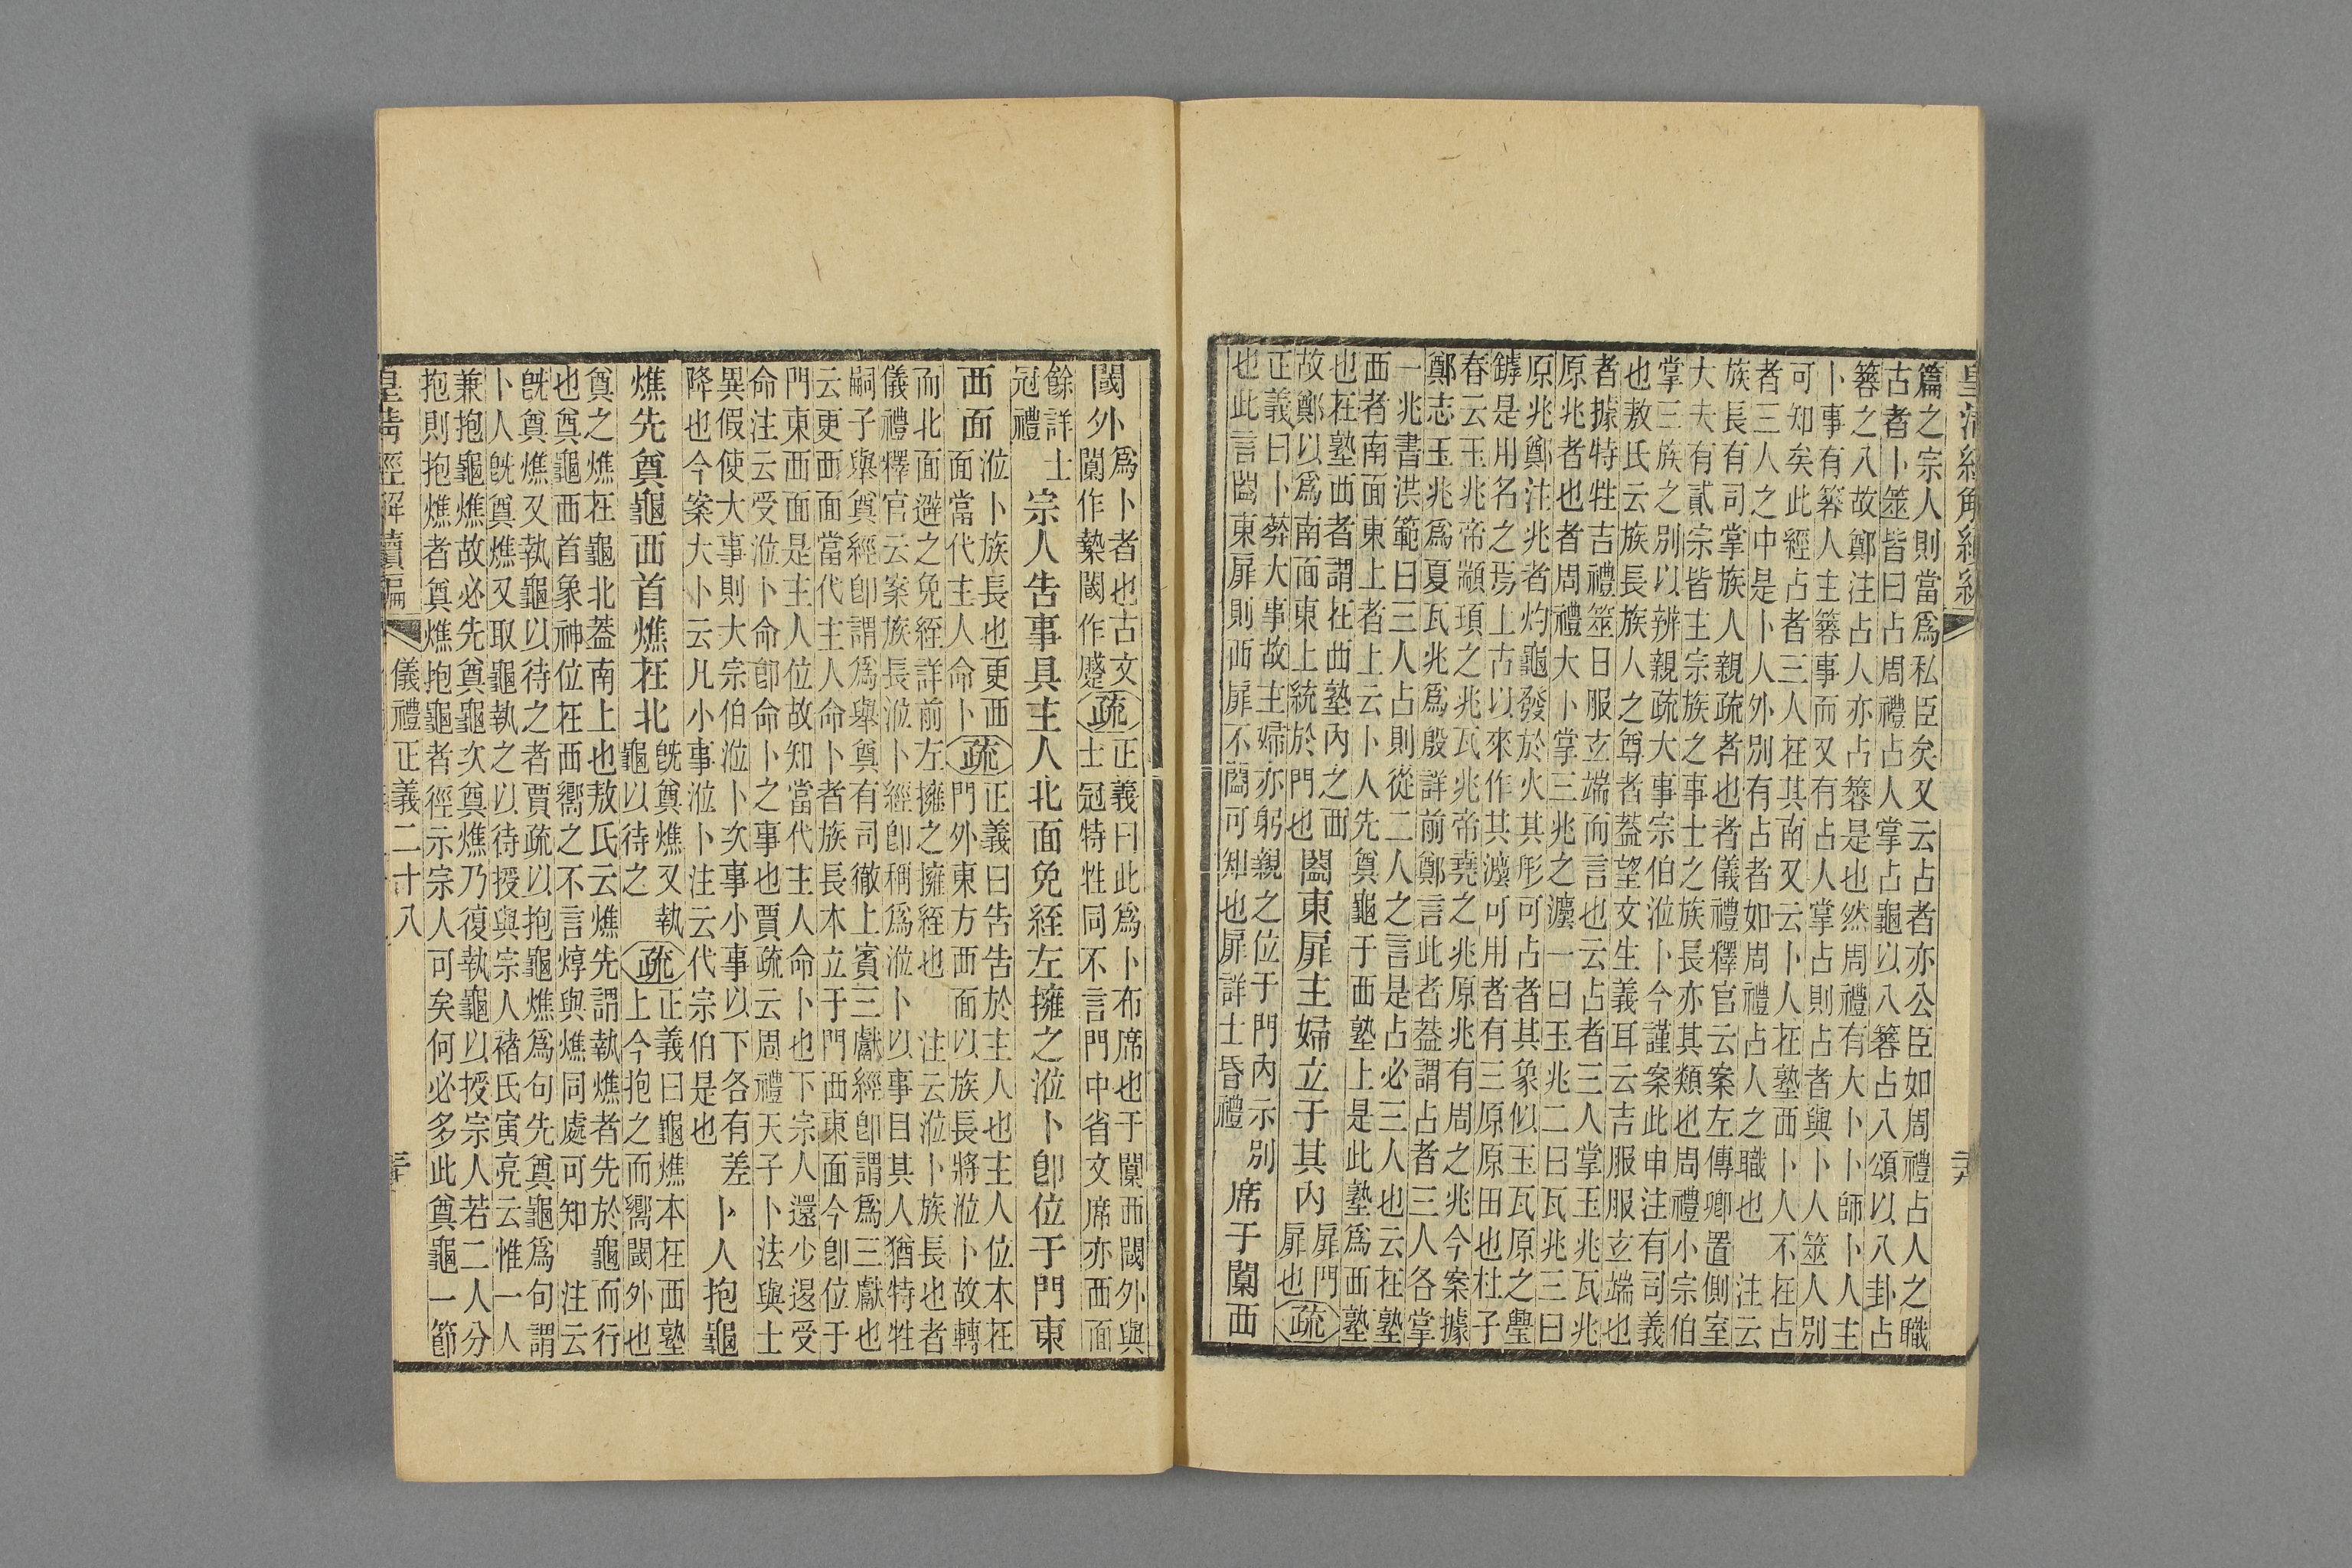 皇清經解續編
篇之宗人則當爲私臣矣又云占者亦公臣如周禮占人之職
古者卜筮皆曰占周禮占人掌占龜以八簭占八頌以八卦占
簭之八故鄭注占人亦占簭是也然周禮有大卜卜師卜人主
卜事有簭人主簭事而又有占人掌占則占者與卜人筮人別
可知矣此經占者三人在其南又云卜人在塾西卜人不在占
者三人之中是卜人外別有占者如周禮占人之職也 注云
族長有司掌族人親疏者也者儀禮釋官云案左傳卿置側室
大夫有貳宗皆主宗族之事士之族長亦其類也周禮小宗伯
掌三族之別以辨親疏大事宗伯涖卜今謹案此申注有司義
也敖氏云族長族人之尊者葢望文生義耳云吉服服玄端也
者據特牲吉禮筮日服玄端而言也云占者三人掌玉兆瓦兆
原兆者也者周禮大卜掌三兆之灋一曰玉兆二曰瓦兆三曰
原兆鄭注兆者灼龜發於火其形可占者其象似玉瓦原之璺
罅是用名之焉上古以來作其灋可用者有三原原田也杜子
春云玉兆帝顓頊之兆瓦兆帝堯之兆原兆有周之兆今案據
鄭志玉兆爲夏瓦兆爲殷詳前鄭言此者葢謂占者三人各掌
一兆書洪範曰三人占則從二人之言是占必三人也云在塾
西者南面東上者上云卜人先奠龜于西塾上是此塾爲西塾
也在塾西者謂在西塾內之西
故鄭以爲南面東上統於門也
闔東扉主婦立于其內
扉門
扉也
疏
正義曰卜葬大事故主婦亦躬親之位于門內示別
也此言闔東扉則西扉不闔可知也扉詳士昏禮
席于闑西
閾外
爲卜者也古文
闑作槷閾作蹙
疏
正義曰此爲卜布席也于闑西閾外與
士冠特牲同不言門中省文席亦西面
餘詳士
冠禮
宗人告事具主人北面免絰左擁之涖卜卽位于門東
西面
涖卜族長也更西
面當代主人命卜
疏
正義曰告告於主人也主人位本在
門外東方西面以族長將涖卜故轉
而北面避之免絰詳前左擁之擁絰也 注云涖卜族長也者
儀禮釋官云案族長涖卜經卽稱爲涖卜以事目其人猶特牲
嗣子舉奠經卽謂爲舉奠有司徹上賓三獻經卽謂爲三獻也
云更西面當代主人命卜者族長本立于門西東面今卽位于
門東西面是主人位故知當代主人命卜也下宗人還少退受
命注云受涖卜命卽命卜之事也賈疏云周禮天子卜法與士
異假使大事則大宗伯涖卜次事小事以下各有差
降也今案大卜云凡小事涖卜注云代宗伯是也
卜人抱龜
燋先奠龜西首燋在北
旣奠燋又執
龜以待之
疏
正義曰龜燋本在西塾
上今抱之而嚮閾外也
奠之燋在龜北葢南上也敖氏云燋先謂執燋者先於龜而行
也奠龜西首象神位在西嚮之不言焞與燋同處可知 注云
旣奠燋又執龜以待之者賈疏以抱龜燋爲句先奠龜爲句謂
卜人旣奠燋又取龜執之以待授與宗人褚氏寅亮云惟一人
兼抱龜燋故必先奠龜次奠燋乃復執龜以授宗人若二人分
抱則抱燋者奠燋抱龜者徑示宗人可矣何必多此奠龜一節
皇清經解續編
儀禮正義二十八